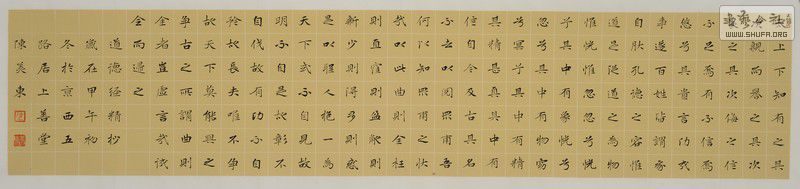 太上下知有之其
次親而譽之其次
畏之其次侮之信
不足焉有不信焉
悠兮其貴言功成
事遂百姓皆謂我
自然孔德之容惟
道是從道之為物
惟恍惟惚惚兮恍
兮其中有象恍兮
忽兮其中有物窈
兮冥兮其中有精
其精甚真其中有
信自今及古其名
不去以閱眾甫吾
何以知眾甫之狀
哉以此曲則全枉
則直窪則盈敝則
新少則得多則惑
是以聖人抱一為
天下式不自見故
明不自是故彰不
自伐故有功不自
矜故長夫唯不爭
故天下莫能與之
爭古之所謂曲則
全者豈虛言哉誠
全而歸之
道德經精抄
歲在甲午初
冬於京西五
路居上善堂
陳奐東
WWW.SHUFA.ORG